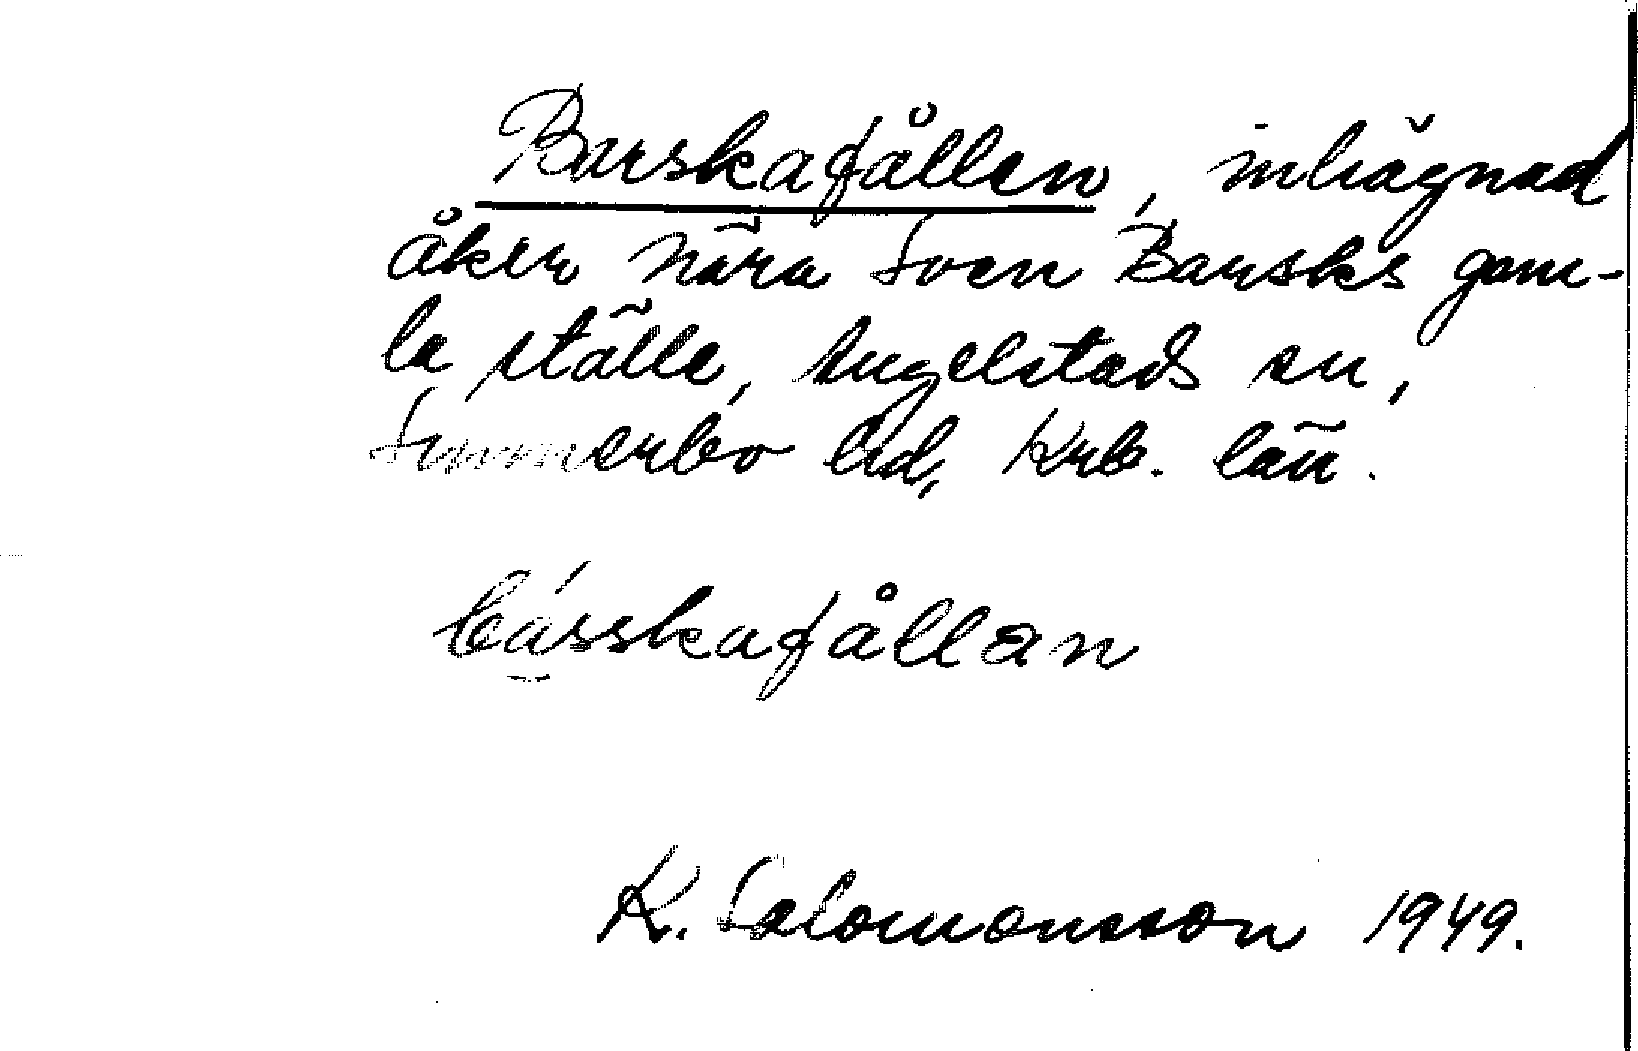 Barskafållen, inhägnad
åker nära Sven Barsks gam-
la ställe, Angelstads sn,
Sunnerbo hd, Krb. län.
básskafållan
K. Salomonsson 1949.